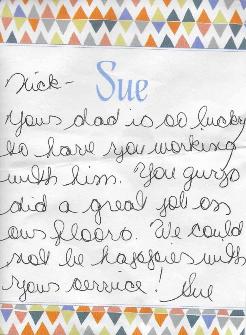 Sue
Nick-
Your dad is so lucky
to have you working
with him. You guys
did a great job on
our floors. We could
not be happier with
your service! Sue